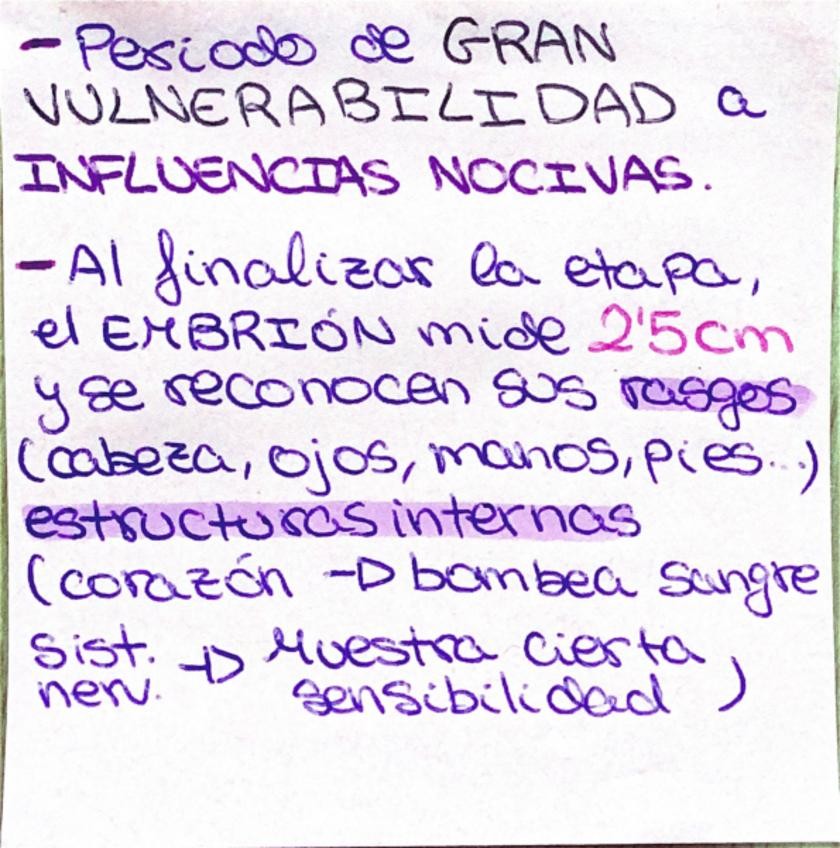 - Periodo de GRAN
VULNERABILIDAD a
INFLUENCIAS NOCIVAS.
- Al finalizar la etapa,
el EMBRIÓN mide 2'5cm
y se reconocen sus rasgos
(cabeza, ojos, manos, pies...)
estructuras internas
(corazón → bombea sangre
sist. nerv. → Muestra cierta sensibilidad)